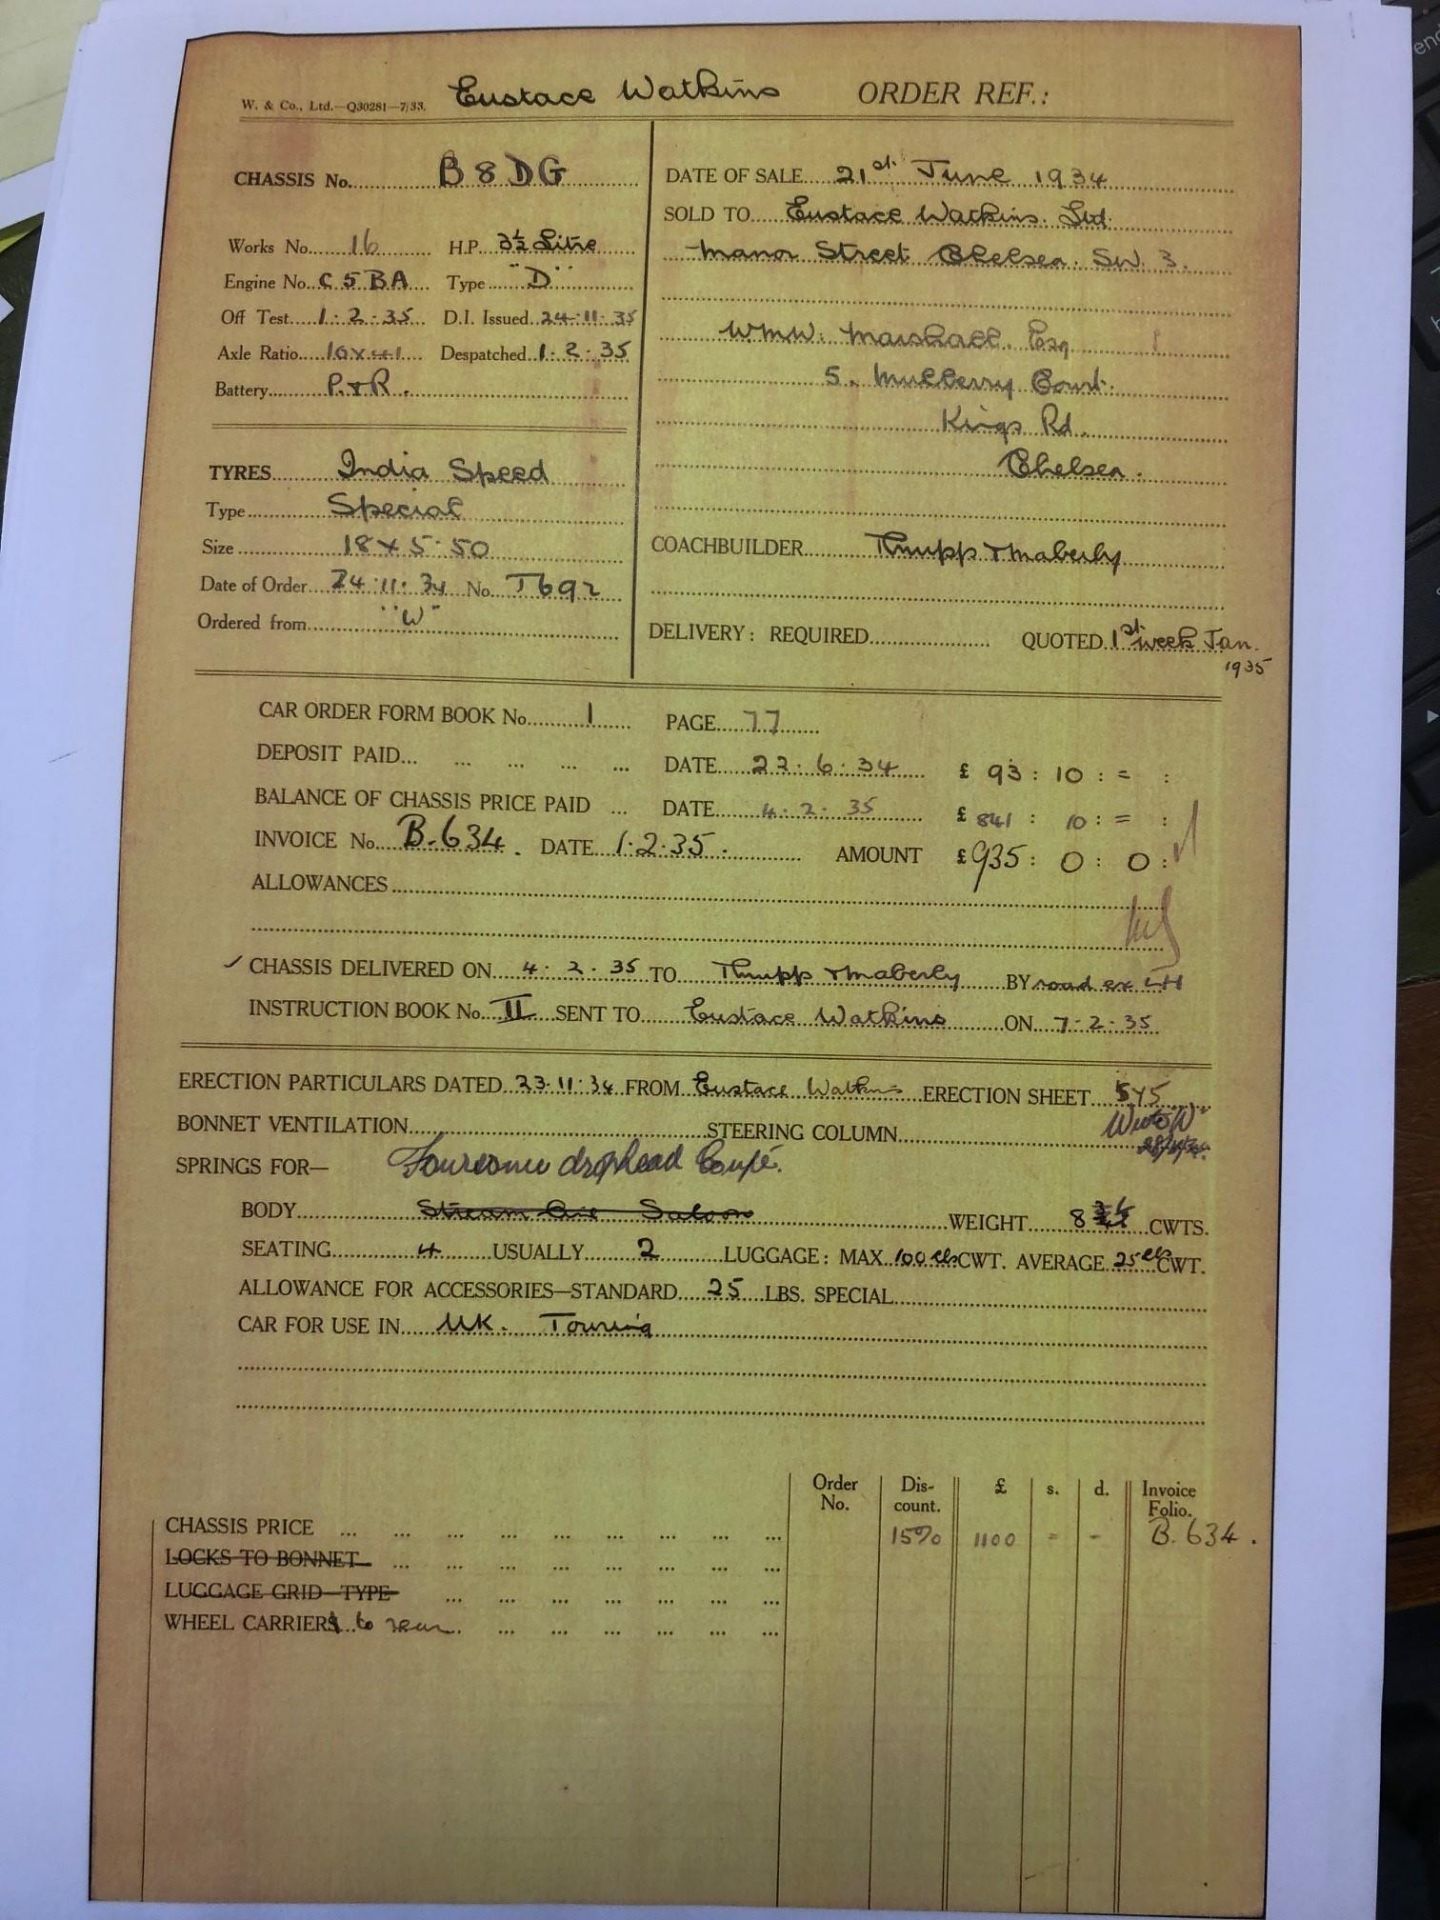 W. & Co., Ltd.—Q30281—7/33. Eustace Watkins ORDER REF.:
CHASSIS No. B 8 DG
Works No. 16 H.P. 3½ Litre
Engine No. C 5 BA Type "D"
Off Test 1.2.35 D.I. Issued 24.11.35
Axle Ratio 10x41 Despatched 1.2.35
Battery P.&R.
TYRES India Speed
Type Special
Size 18x5.50
Date of Order 24.11.34 No. T692
Ordered from "W"
DATE OF SALE 21st June 1934
SOLD TO Eustace Watkins Ltd.
Manor Street Chelsea. SW 3.
WMW. Marshall. Esq
5. Mulberry Court.
Kings Rd.
Chelsea.
COACHBUILDER Thrupp & Maberly
DELIVERY: REQUIRED QUOTED 1st week Jan.
1935
CAR ORDER FORM BOOK No. 1 PAGE 77
DEPOSIT PAID... ... ... ... ... DATE 22.6.34 £ 93 : 10 : = :
BALANCE OF CHASSIS PRICE PAID ... DATE 4.2.35 £ 841 : 10 : = :
INVOICE No. B.634. DATE 1.2.35. AMOUNT £935 : 0 : 0 :
ALLOWANCES
CHASSIS DELIVERED ON 4.2.35 TO Thrupp & Maberly BY road ex LH
INSTRUCTION BOOK No. II SENT TO Eustace Watkins ON 7.2.35
ERECTION PARTICULARS DATED 23.11.34 FROM Eustace Watkins ERECTION SHEET 5Y5
BONNET VENTILATION STEERING COLUMN "W"
SPRINGS FOR— Foursome drophead Coupé.
BODY Stream Line Saloon WEIGHT 8 CWTS.
SEATING 4 USUALLY 2 LUGGAGE: MAX. 100 lbs CWT. AVERAGE 25 lbs CWT.
ALLOWANCE FOR ACCESSORIES—STANDARD 25 LBS. SPECIAL
CAR FOR USE IN UK. Touring
Order No. Dis-count. £ s. d. Invoice Folio.
CHASSIS PRICE ... ... ... ... ... ... ... ... ... 15% 1100 - - B.634.
LOCKS TO BONNET ... ... ... ... ... ... ... ...
LUGGAGE GRID—TYPE ... ... ... ... ... ... ...
WHEEL CARRIER 1 to rear. ... ... ... ... ... ...